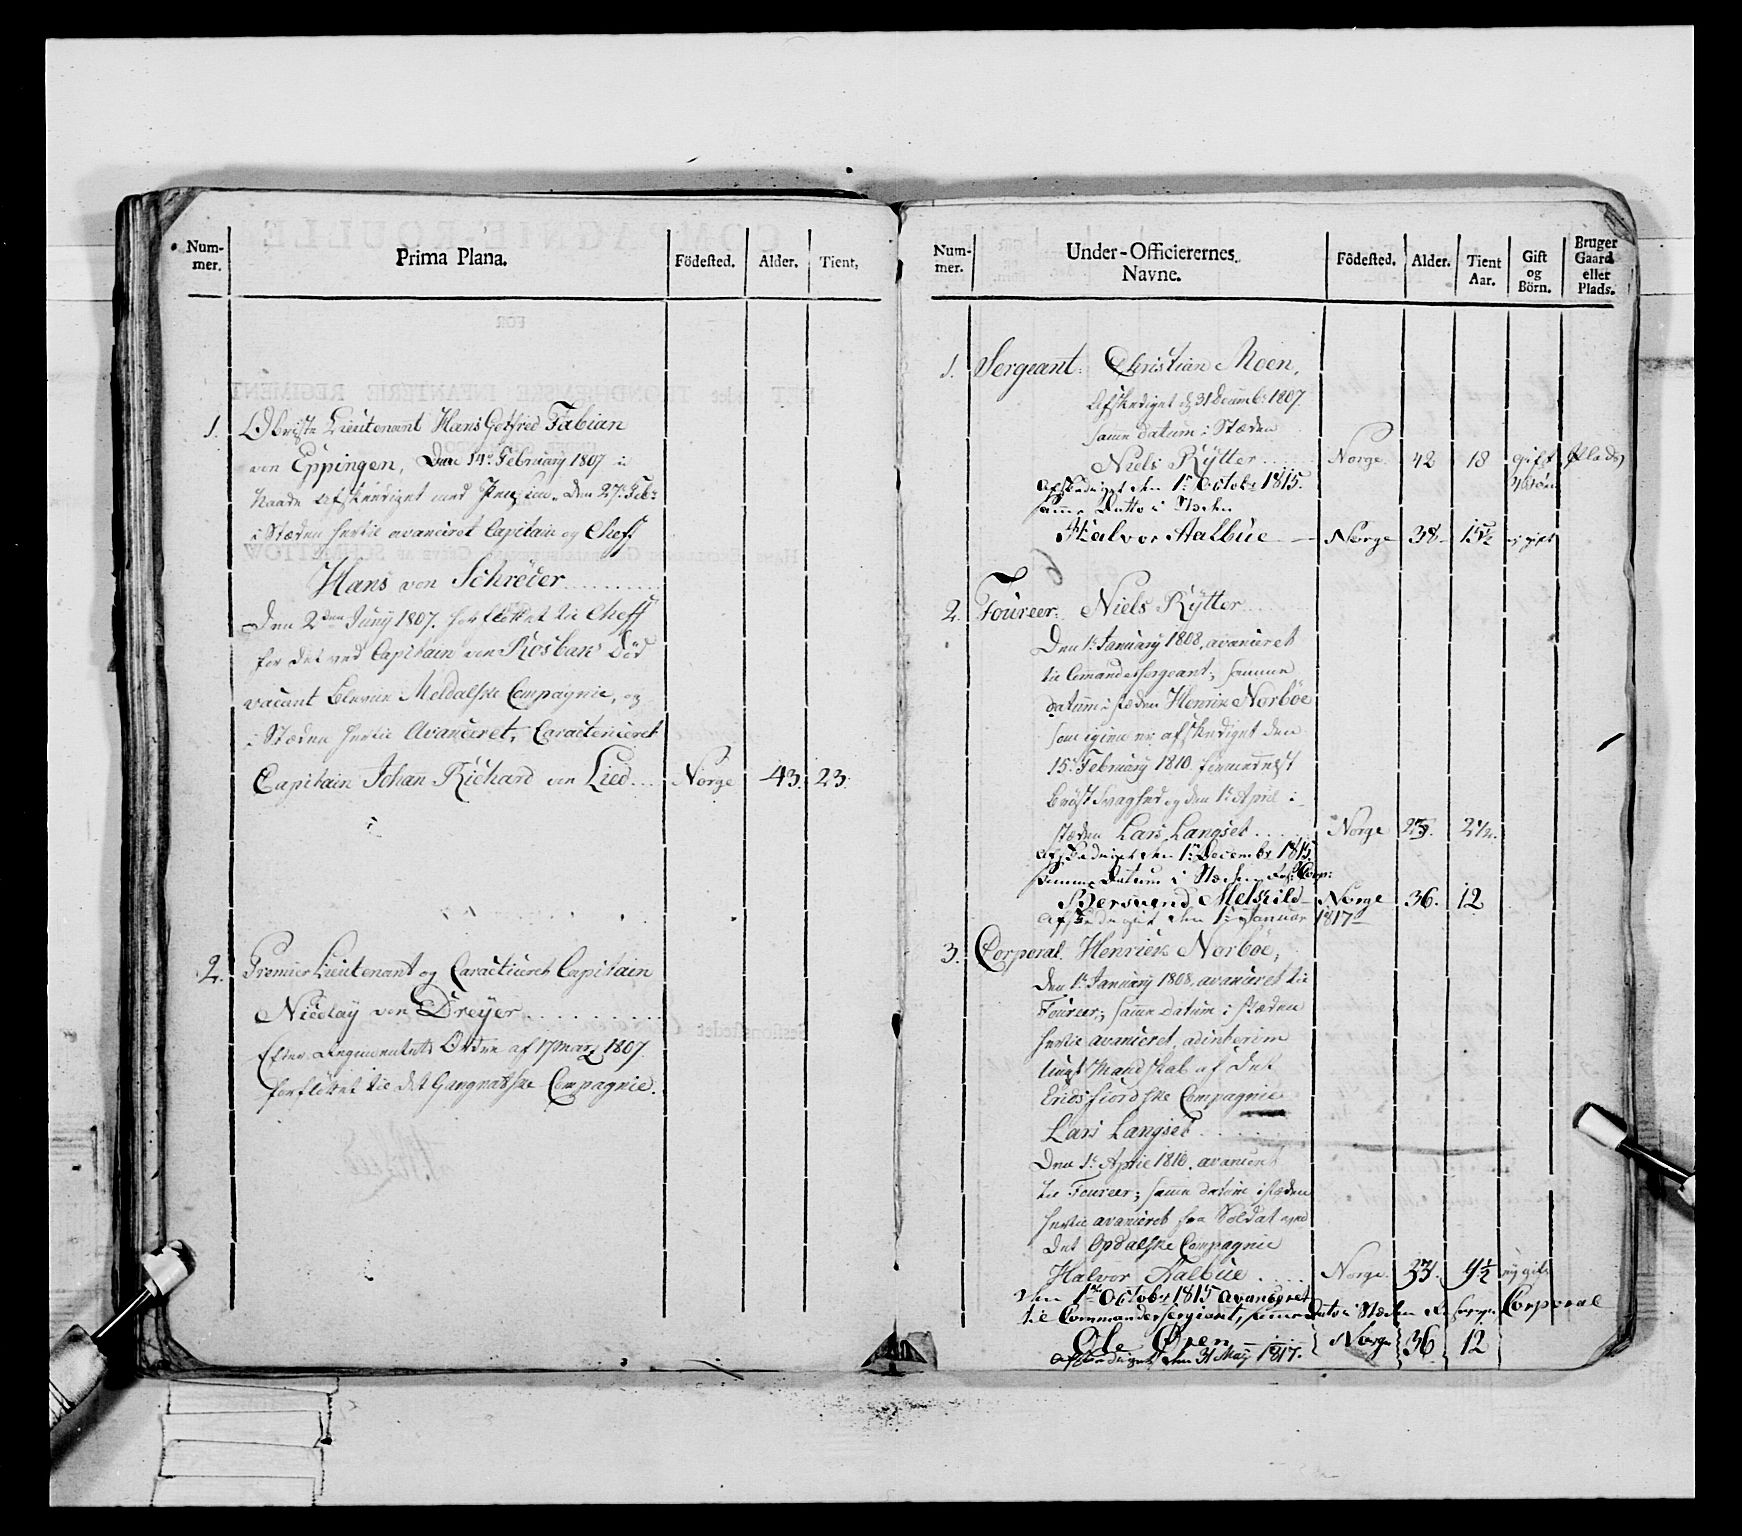 Num-
mer.
Prima Plana.
Födested.
Alder.
Tient.
1. Obriste Lieutenant Hans Gotfred Fabian
von Eppingen, Den 14de February 1807 i
Naade Afskediget med Pension. Den 27de Feb:
i Stæden hertil avanceret Capitain og Chef
Hans von Schrøder
Den 2den Juny 1807. forflöttet til Cheff
for det ved Capitain von Rosbaks Död
vacant blevne Meldalske Compagnie, og
i Stæden hertil Avanceret, Caracteriseret
Capitain Johan Richard von Lied Norge 43. 23.
2. Premier Lieutenant og Caracteriseret Capitain
Nicolay von Dreyer
Efter Regimentets Ordre af 17 Marz 1807
forflöttet til det Compagnie.
Num-
mer.
Under-Officierernes
Navne.
Födested.
Alder.
Tient
Aar.
Gift
og
Börn.
Bruger
Gaard
eller
Plads.
1. Sergeant: Christian Moen,
Afskediget d. 31 Decemb: 1807.
samme datum i Stæden
Niels Rytter Norge 42 18 gift Plads
Afskediget den 1ste Octobr 1815.
samme Datto i Stæden
Halvor Aalbue Norge 38 15½ gift
2. Foureer: Niels Rytter
Den 1. January 1808. avanceret
til Comandersergeant, samme
datum i stæden Henrik Norböe
som igien er afskediget den
15. February 1810 formedelst
Bryst Svaghed og den 1. April i
stæden Lars Langset Norge 2½.
Afskediget den 1ste Decembr 1815.
Samme Datum i Stæden Corp:
Bersvend Melkild Norge 36. 12
Afskediget den 1ste Januar 1817
3. Corporal Henrick Norböe,
Den 1. January 1808. avanceret til
Foureer; samme datum i stæden
hertil avanceret, adinterim
Mandskab af det
Eridsfiordske Compagnie
Lars Langset
Den 1. April 1810. avanceret
til Foureer; samme datum i stæden
hertil avanceret fra Soldat ved
det Opdalske Compagnie
Halvor Aalbue Norge. 33. 9½ gift
den 1ste Octobr 1815 avanceret
til Commandersergeant, samme Dato i Stæden Corporal
Ole Øren Norge 36 12
Afskediget den 31 May 1817.